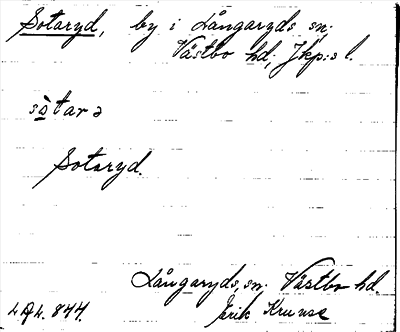 Sotaryd, by i Långaryds sn.
Västbo hd, Jkp:s l.
sòtarə
Sotaryd.
Långaryds, sn. Västbo hd.
Erik Krunse
L.A.L. 844.